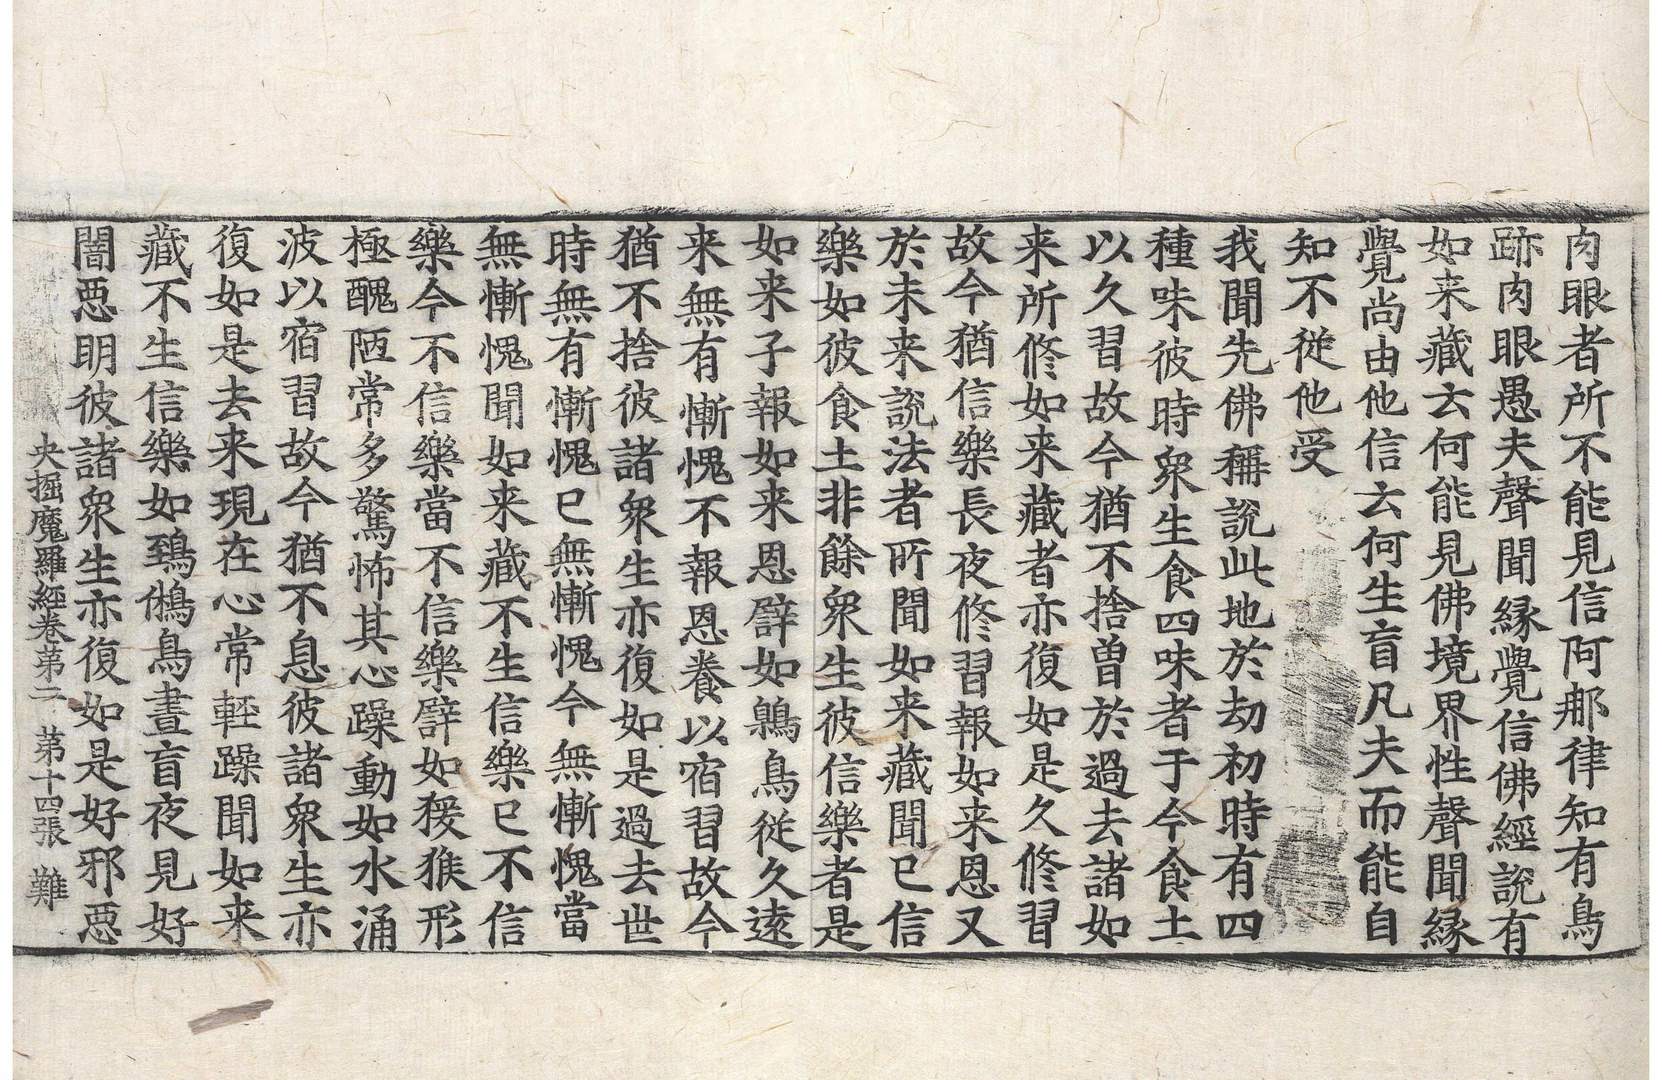 肉眼者所不能見信阿那律知有鳥
跡肉眼愚夫聲聞緣覺信佛經說有
如来藏云何能見佛境界性聲聞緣
覺尚由他信云何生盲凡夫而能自
知不從他受
我聞先佛稱說此地於劫初時有四
種味彼時衆生食四味者于今食土
以久習故今猶不捨曽於過去諸如
来所修如来藏者亦復如是久修習
故今猶信樂長夜修習報如来恩又
於未来說法者所聞如来藏聞已信
樂如彼食土非餘衆生彼信樂者是
如来子報如来恩譬如鵰鳥從久遠
来無有慚愧不報恩養以宿習故今
猶不捨彼諸衆生亦復如是過去世
時無有慚愧已無慚愧今無慚愧當
無慚愧聞如来藏不生信樂已不信
樂今不信樂當不信樂譬如猨猴形
極醜陋常多驚怖其心躁動如水涌
波以宿習故今猶不息彼諸衆生亦
復如是去来現在心常輕躁聞如来
藏不生信樂如鵄鵂鳥晝盲夜見好
闇惡明彼諸衆生亦復如是好邪惡
央掘魔羅經卷第二 第十四張 難